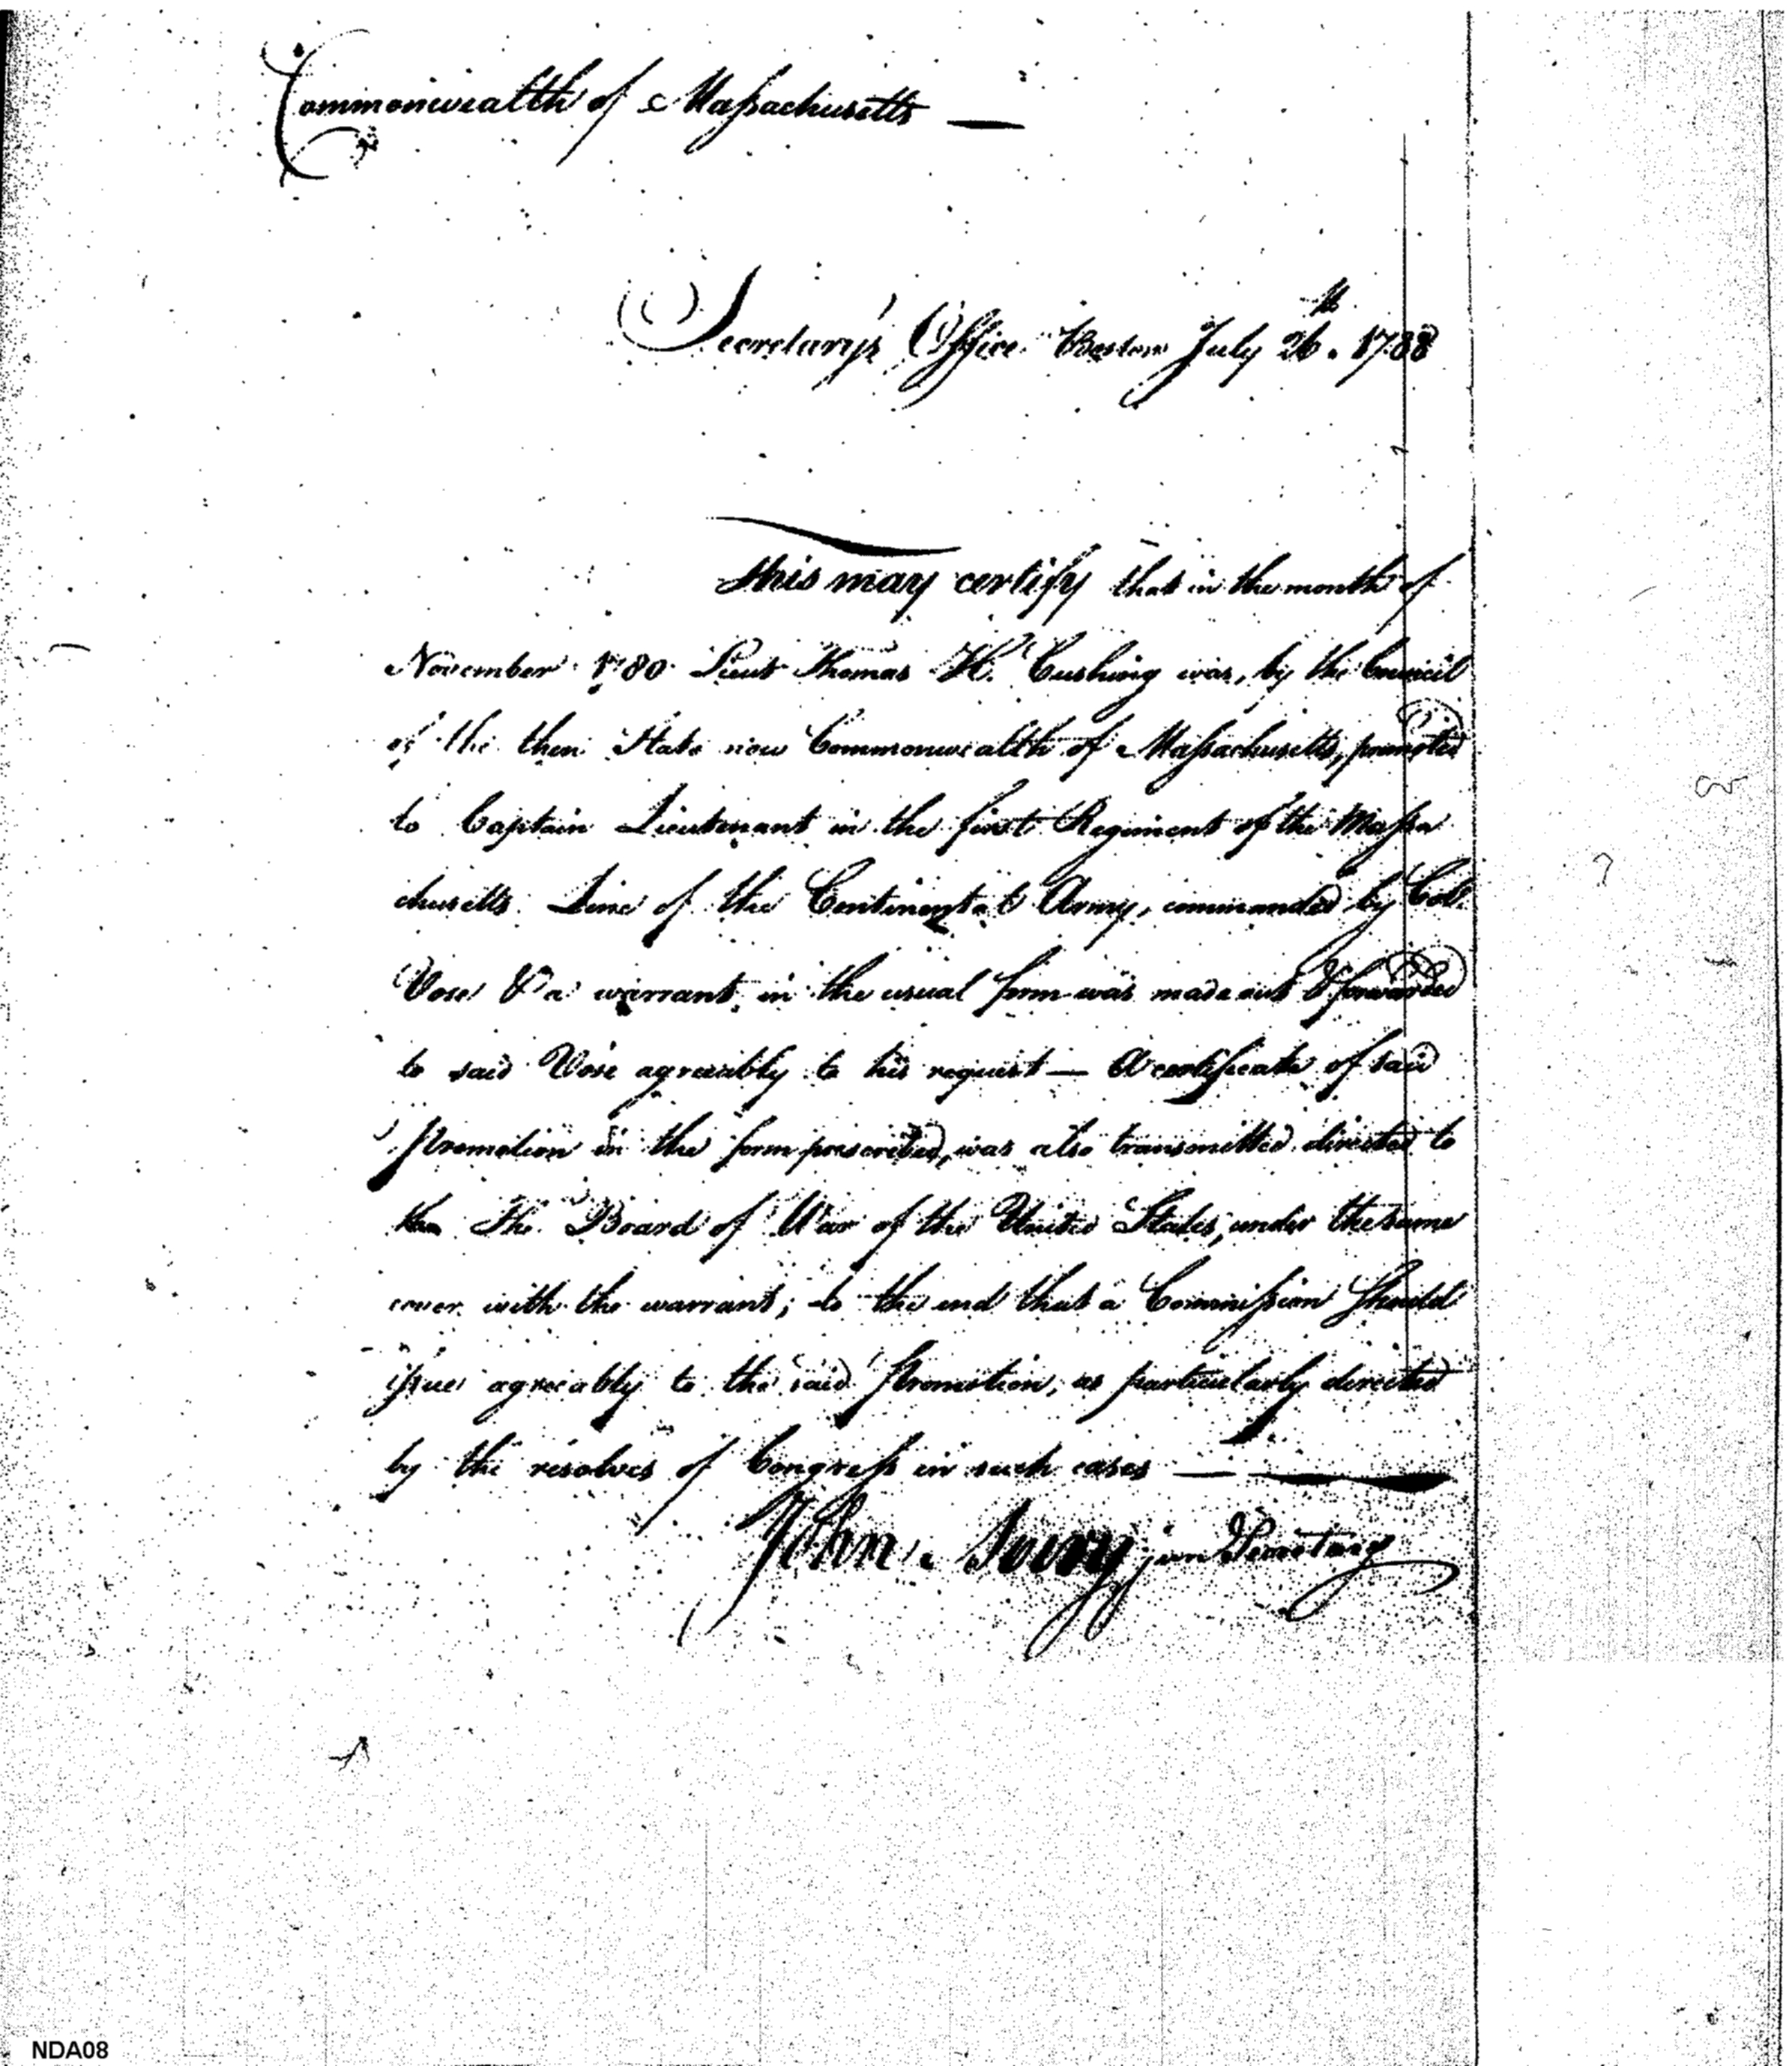 Commonwealth of Massachusetts —
Secretary's Office Boston July 26th. 1788
This may certify that in the month of
November 1780 Lieut Thomas H. Cushing was, by the Council
of the then State now Commonwealth of Massachusetts, promoted
to Captain Lieutenant in the first Regiment of the Massa
chusetts Line of the Continental Army, commanded by Col.
Vose & a warrant in the usual form was made out & forwarded
to said Vose agreeably to his request — A certificate of said
Promotion in the form prescribed, was also transmitted directed to
The Board of War of the United States, under the same
cover with the warrant; to the end that a Commission should
issue agreeably to the said Promotion, as particularly directed
by the resolves of Congress in such cases —
John Avery jun Secretary
NDA08